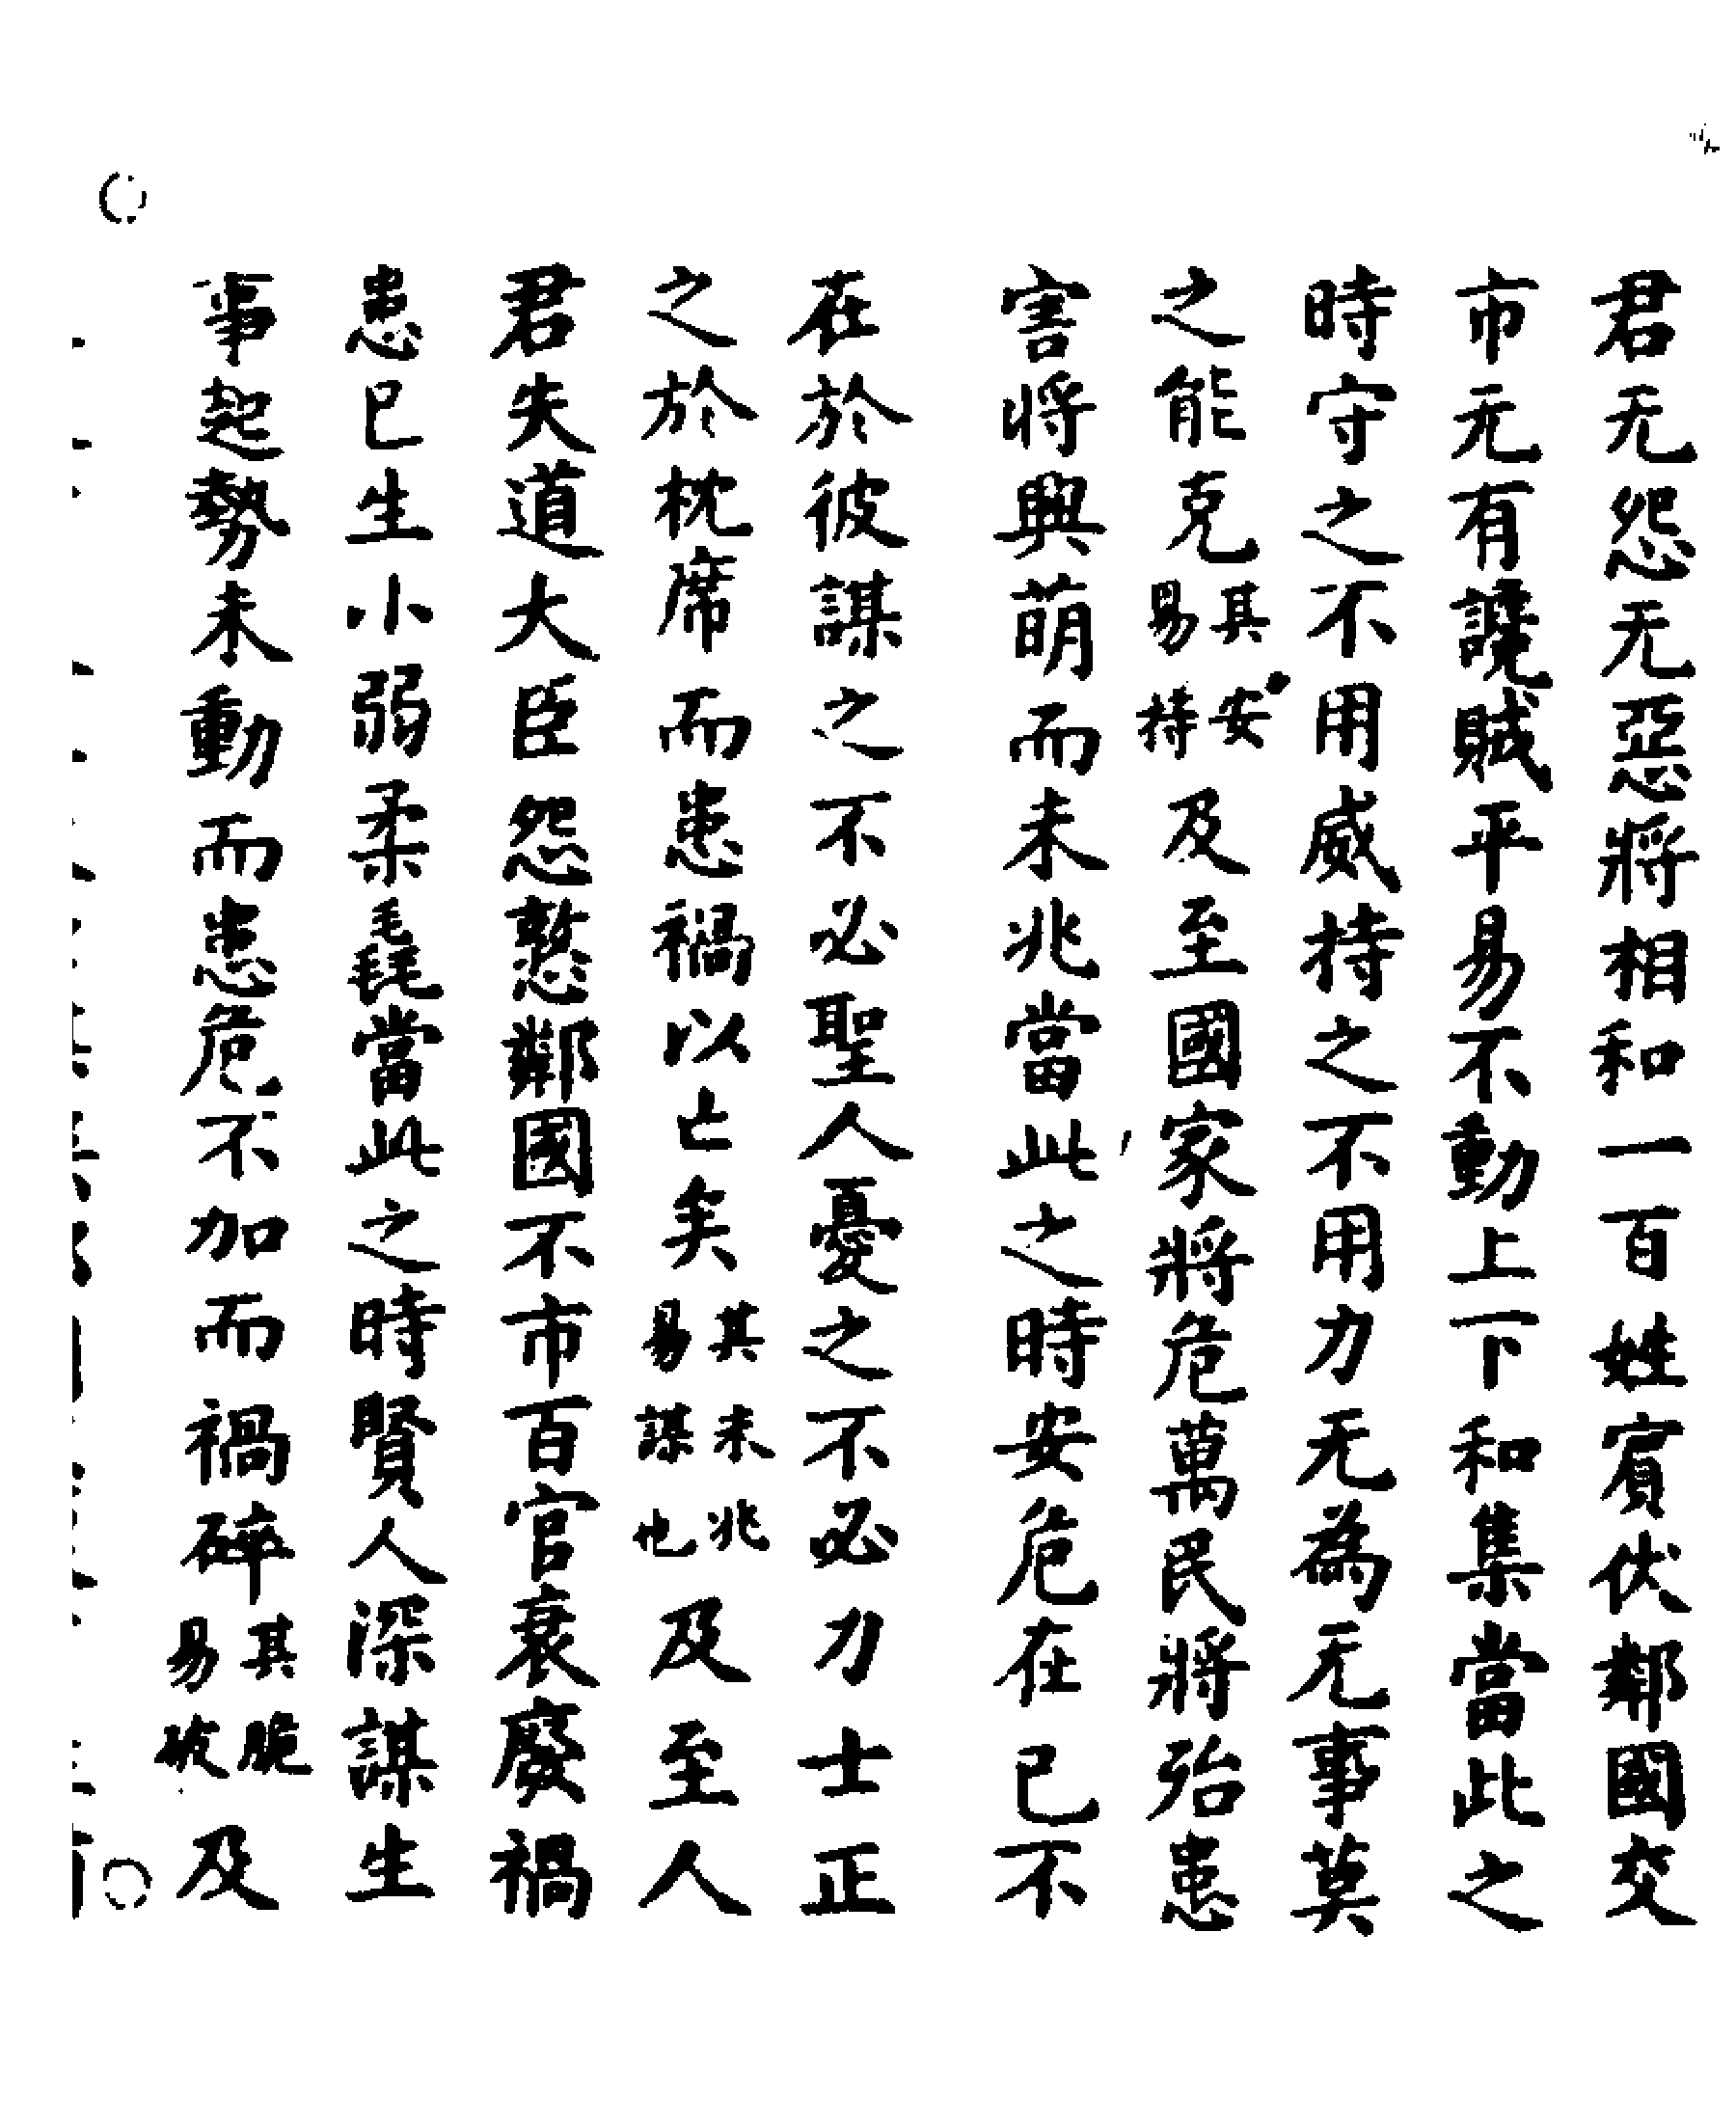 君无怨无惡將相和一百姓賓伏鄰國交
市无有讒賊平易不動上下和集當此之
時守之不用威持之不用力无為无事莫
之能克其安易持及至國家將危萬民將殆患
害將興萌而未兆當此之時安危在己不
在於彼謀之不必聖人憂之不必力士正
之於枕席而患禍以亡矣其未兆易謀也及至人
君失道大臣怨憝鄰國不市百官衰廢禍
患已生小弱柔毳當此之時賢人深謀生
事起勢未動而患危不加而禍碎其脆易破及